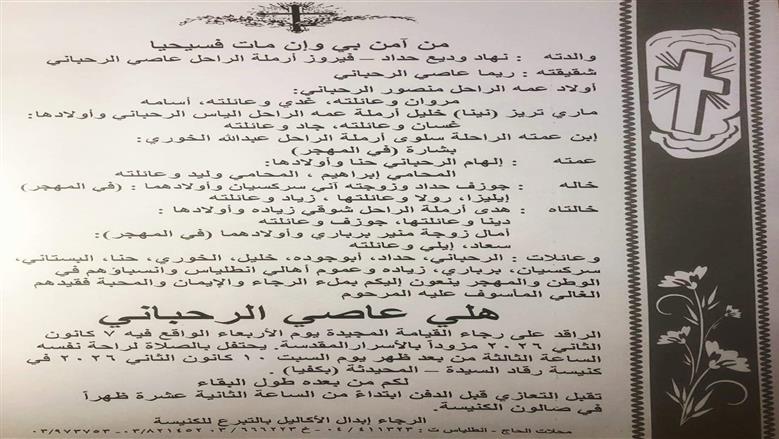 من آمن بي وإن مات فسيحيا
والدته : نهاد وديع حداد – فيروز أرملة الراحل عاصي الرحباني
شقيقته : ريما عاصي الرحباني
أولاد عمه الراحل منصور الرحباني:
مروان وعائلته، غدي وعائلته، أسامه
ماري تريز (نينا) خليل أرملة عمه الراحل الياس الرحباني وأولادها:
غسان وعائلته، جاد وعائلته
إبن عمته الراحلة سلوى أرملة الراحل عبدالله الخوري:
بشارة (في المهجر)
عمته : إلهام الرحباني حنا وأولادها:
المحامي إبراهيم ، المحامي وليد وعائلته
خاله : جوزف حداد وزوجته آني سركسيان وأولادهما : (في المهجر)
إيليزا، رولا وعائلتها ، زياد وعائلته
خالتاه : هدى أرملة الراحل شوقي زياده وأولادها :
دينا وعائلتها، جوزف وعائلته
أمال زوجة منير برباري وأولادهما (في المهجر):
سعاد، إيلي وعائلته
وعائلات : الرحباني، حداد، أبوجوده، خليل، الخوري، حنا، البستاني،
سركسيان، برباري، زياده وعموم أهالي انطلياس وانسباؤهم في
الوطن والمهجر ينعون إليكم بملء الرجاء والإيمان والمحبة فقيدهم
الغالي المأسوف عليه المرحوم
هلي عاصي الرحباني
الراقد على رجاء القيامة المجيدة يوم الأربعاء الواقع فيه ٧ كانون
الثاني ٢٠٢٦ مزوداً بالأسرار المقدسة. يحتفل بالصلاة لراحة نفسه
الساعة الثالثة من بعد ظهر يوم السبت ١٠ كانون الثاني ٢٠٢٦ في
كنيسة رقاد السيدة – المحيدثة (بكفيا).
لكم من بعده طول البقاء
تقبل التعازي قبل الدفن ابتداءً من الساعة الثانية عشرة ظهراً
في صالون الكنيسة.
الرجاء إبدال الأكاليل بالتبرع للكنيسة
محلات الحاج - انطلياس ت : ٠٤/٤١١٣٢٣ - خ ٠٣/٦٦٦٢٢٣ - ٠٣/٨٢١٤٥٢ - ٠٣/٩٧٣٧٥٣